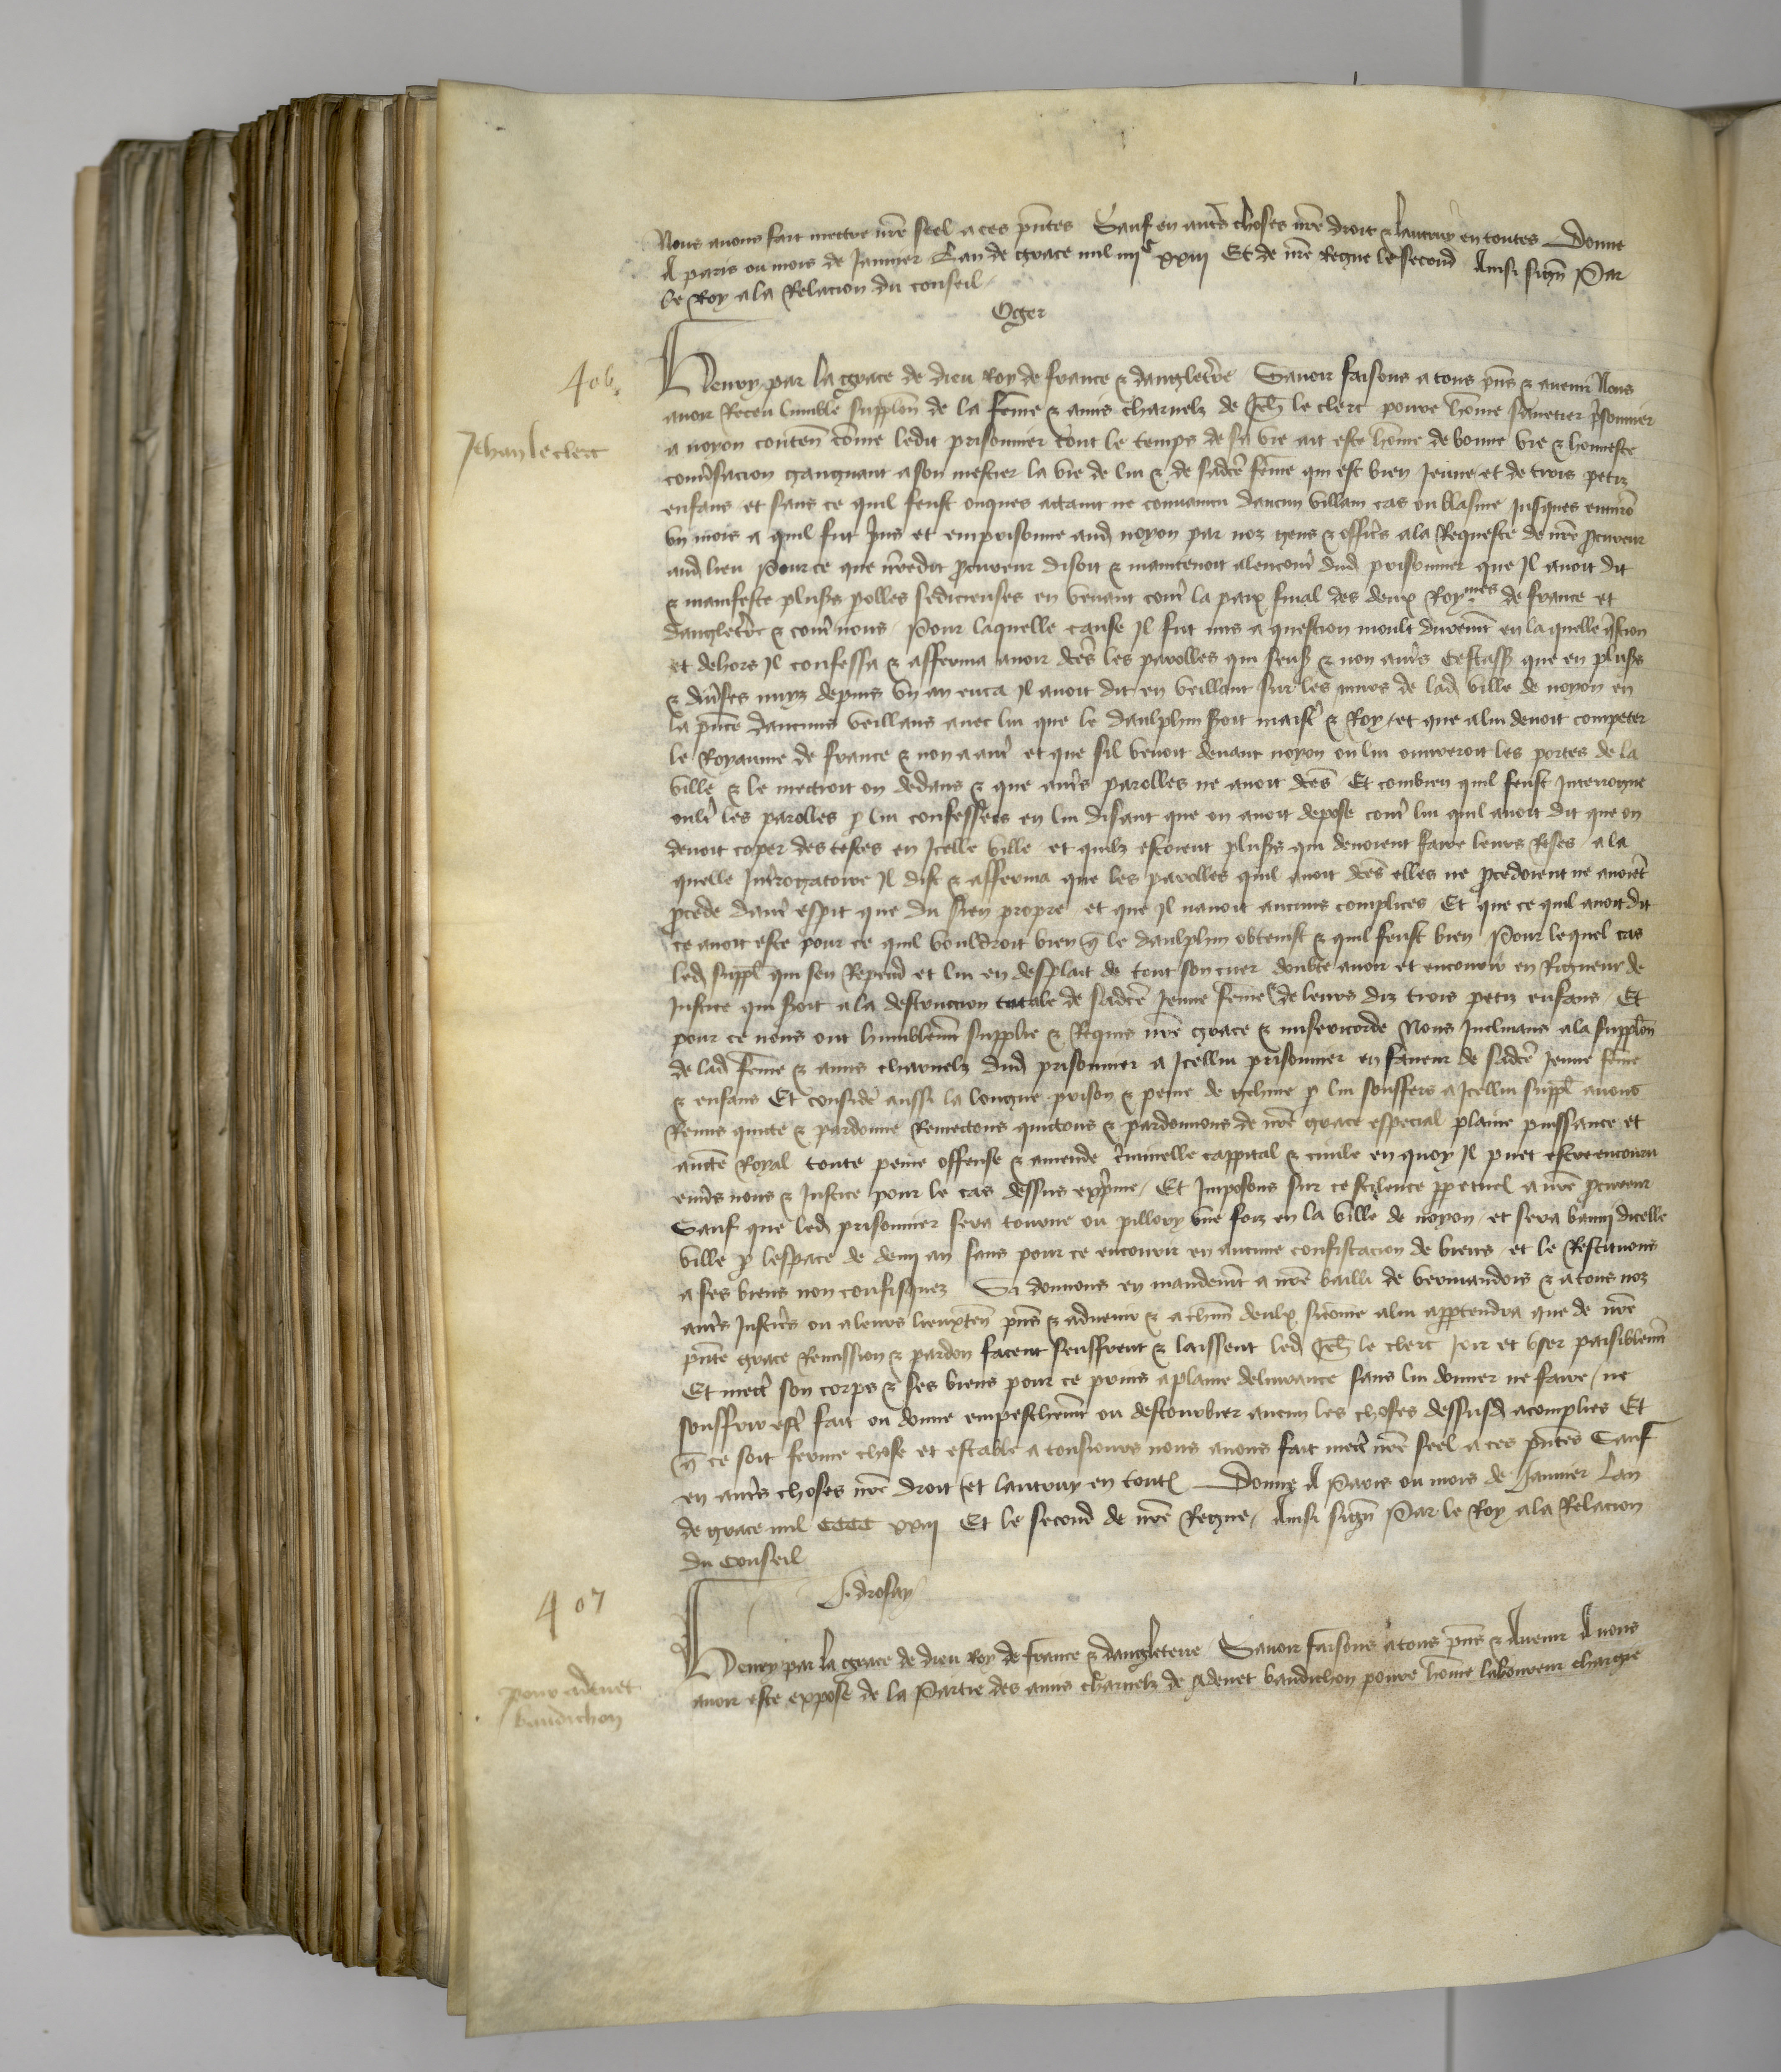 Nous auons fait mettre nre seel a ces pntes Sauf en autres choses nre droit & lautruy en toutes Donne
A paris ou mois de Januier Lan de grace mil iiiic xxiii Et de nre Regne le second Ainsi signe Par
le Roy a la Relacion du conseil
Oger
406
Henry par la grace de dieu Roy de france & dangleterre Sauoir faisons a tous pns & auenir Nous
auoir Receu lumble supplon de la feme & amis charnelz de Jeh le clerc poure home sauetier prisonnier
Jehan le clerc
a noyon conten come ledit prisonnier tout le temps de sa vie ait este home de bonne vie & honneste
conusacion gaingnant a son mestier la vie de lui & de sadce feme qui est bien Jeune et de trois petiz
enfans et sans ce quil feust onques attaint ne conuaincu daucun villain cas ou blasme Jusques enuiro
vn mois a quil fut pins et emprisonne aud noyon par noz gens & officrs a la Requeste de nre procureur
aud lieu Pour ce que nredit procureur disoit & maintenoit alencontr dud prisonnier que Il auoit dit
& manifeste plus polles sedicieuses en venant contr la paix final des deux Roymes de france et
dangletere & contr nous Pour laquelle cause Il fut mis a question moult durement en la quelle qstion
et dehors Il confessa & afferma auoir dces les parolles qui sens & non aures Cestass que en pluss
& diuses nuyz depuis vn an enca Il auoit dit en veillant sur les murs de lad ville de noyon en
la pnce daucuns veillans auec lui que le daulphin soit maistr & Roy et que a lui deuoit competer
le Royaume de france & non a autr et que sil venoit deuant noyon on lui ouureroit les portes de la
ville & le mectroit on dedans & que aures parolles ne auoit dces Et combien quil feust Interrogue
oultr les parolles p lui confessees en lui disant que on auoit depose contr lui quil auoit dit que on
deuoit coper des testes en Jcelle ville et quilz estoient pluss qui deuoient faire leurs Reses a la
quelle Introgatoire Il dist & afferma que les parolles quil auoit dces elles ne procedoient ne auoiet
procede dautr espit que du sien propre et que Il nauoit aucuns complices Et que ce quil auoit dit
ce auoit este pour ce quil vouldroit bien q le daulphin obtenist & quil feust bien Pour lequel cas
led suppl qui sen Repend et lui en desplait de tout son cuer doubte auoir et encourir en Rigueur de
Justice qui soit a la destruction totale de sadce Jeune feme & de leurs diz trois petiz enfans Et
pour ce nous ont humblemt supplie & Requis nre grace & misericorde Nous Inclinans a la supplon
de lad feme & amis charnelz dud prisonnier a Jcellui prisonnier en faueur de sadce Jeune feme
& enfans Et consider aussi la longue prison & peine de gehine p lui souffers a Jcellui suppl auons
Remis quicte & pardonne Remectons quictons & pardonnons de nre grace especial plaine puissance et
aucte Royal toute peine offense & amende criminelle cappital & ciuile en quoy Il puet estre encouru
enuers nous & Justice pour le cas dessus exprime Et Imposons sur ce scilence ppetuel a nre procureur
Sauf que led prisonnier sera tourne ou pillory vne foiz en la ville de noyon et sera banny dicelle
ville p lespace de demi an sans pour ce encourir en aucune confiscacion de biens et le Restituons
a ses biens non confisquez Si donnons en mandemt a nre bailli de vermandois & a tous noz
autrs Justicrs ou a leurs lieuxten pns & aduenir & a chun deulx sicome a lui apptendra que de nre
pnte grace Remission & pardon facent seuffrent & laissent led Jeh le clerc Joir et vser paisiblemt
Et mectr son corps & ses biens pour ce prins a plaine deliurance sans lui donner ne faire ne
souffrir estr fait ou donne empeschemt ou destourbier aucun les choses dessusd acomplies Et
q ce soit ferme chose et estable a tousiours nous auons fait mectr nre seel a ces pntes Sauf
en autrs choses nre droit et lautruy en toutes Donne A Paris ou mois de Januier Lan
de grace mil CCCC xxiii Et le second de nre Regne Ainsi signe Par le Roy a la Relacion
du Conseil
J. drosay
407
Henry par la grace de dieu Roy de france & dangleterre Sauoir faisons a tous pns & Auenir A nous
pour adenet
baudichon
auoir este expose de la Partie des amis charnelz de Adenet baudichon poure home laboureur charge